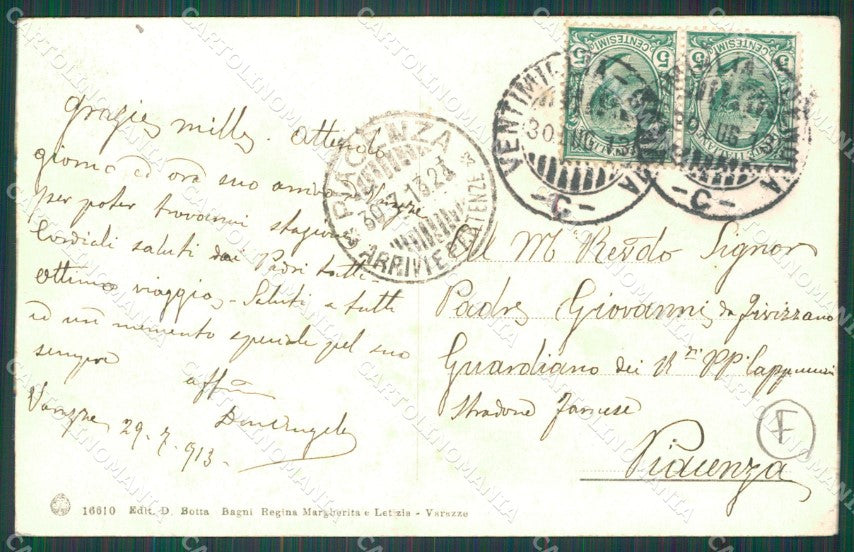 grazie mille. attendo
giorno ed ora suo arrivo Varazze
per poter trovarmi stazione
Cordiali saluti dai Padri tutti
ottimo viaggio - Saluti a tutti
ed un memento speciale pel suo
sempre
aff
Don Angelo
Varazze 29.7.913.
Al M. Revdo Signor
Padre Giovanni da Fivizzano
Guardiano dei R PP. Cappuccini
Stradone Farnese
Piacenza
F
PIACENZA
30.7.13.
ARRIVI E PARTENZE
VENTIMIGLIA - GENOVA
30
- C -
VENTIMIGLIA - GENOVA
30
- C -
CENTESIMI 5
CENTESIMI 5
16610 Edit. D. Botta Bagni Regina Margherita e Letizia - Varazze
CARTOLINOMANIA